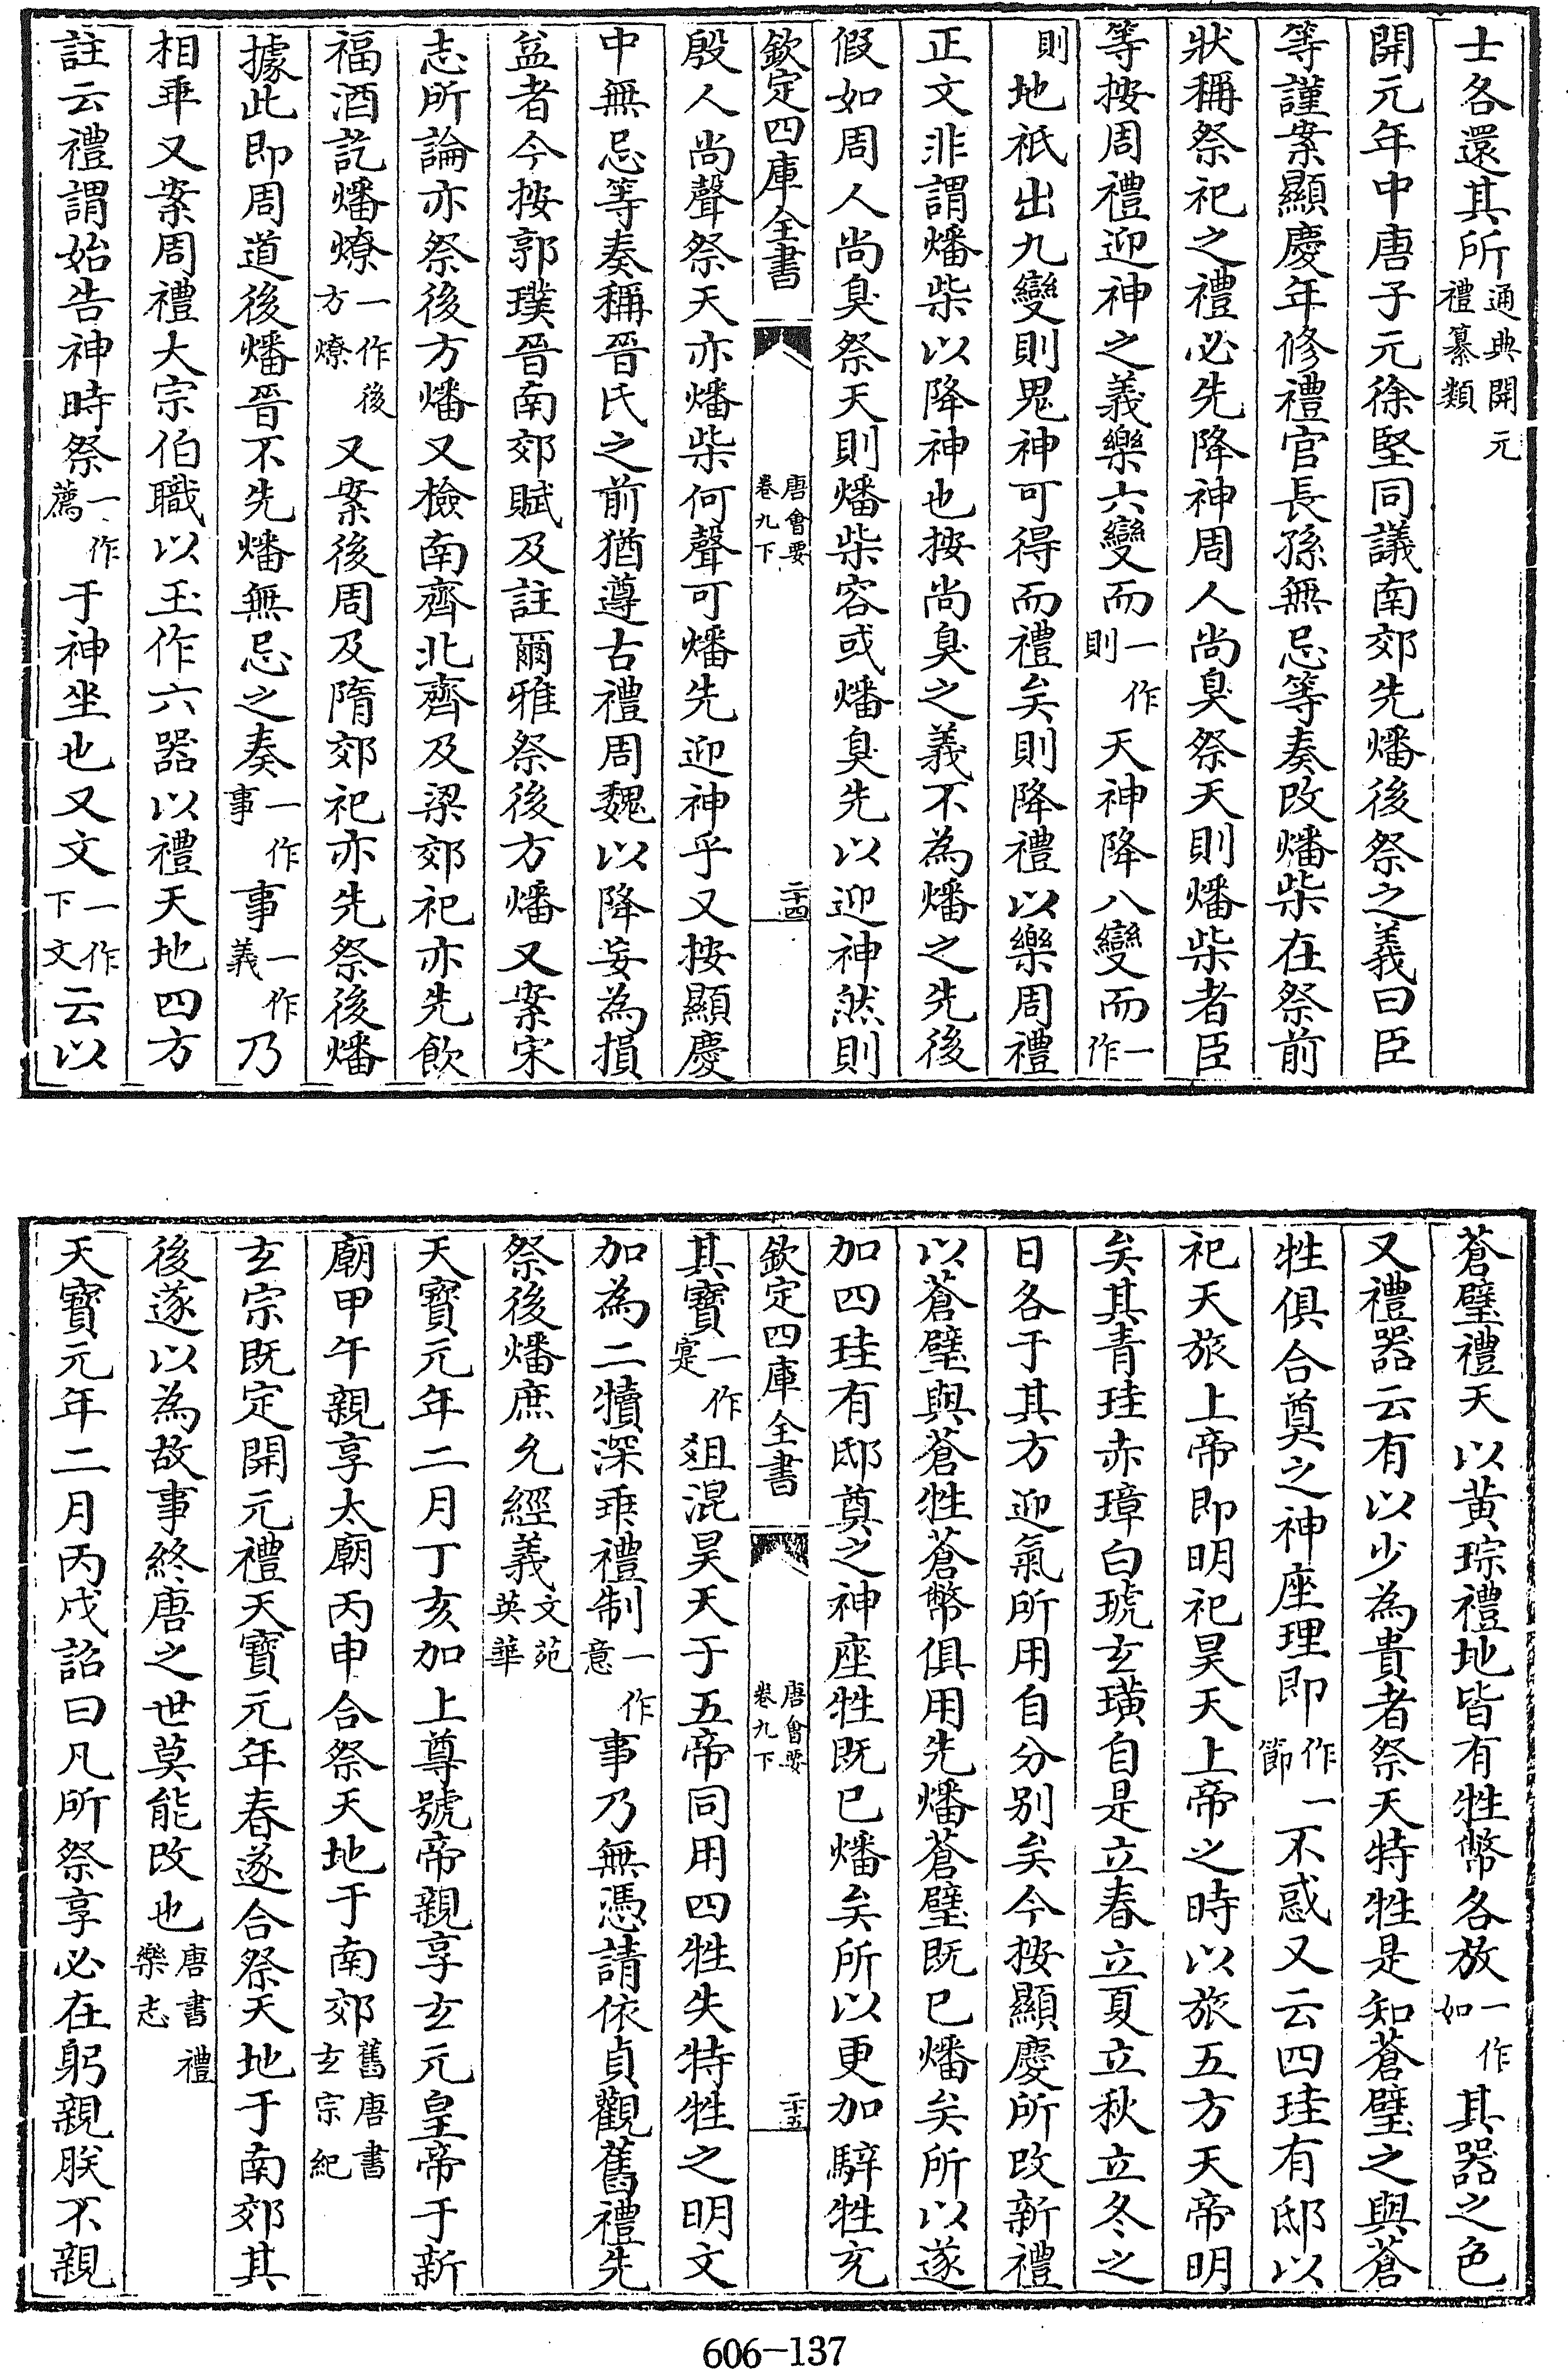 士各還其所通典開元禮纂類
開元年中唐子元徐堅同議南郊先燔後祭之義曰臣
等謹案顯慶年修禮官長孫無忌等奏改燔柴在祭前
狀稱祭祀之禮必先降神周人尚臭祭天則燔柴者臣
等按周禮迎神之義樂六變而一作則天神降八變而一作
則地祇出九變則鬼神可得而禮矣則降禮以樂周禮
正文非謂燔柴以降神也按尚臭之義不為燔之先後
假如周人尚臭祭天則燔柴容或燔臭先以迎神然則
欽定四庫全書 唐會要卷九下 二十四
殷人尚聲祭天亦燔柴何聲可燔先迎神乎又按顯慶
中無忌等奏稱晉氏之前猶遵古禮周魏以降妄為損
益者今按郭璞晉南郊賦及註爾雅祭後方燔又案宋
志所論亦祭後方燔又檢南齊北齊及梁郊祀亦先飲
福酒訖燔燎一作後方燎又案後周及隋郊祀亦先祭後燔
據此即周道後燔晉不先燔無忌之奏一作事事一作義乃
相乖又案周禮大宗伯職以玉作六器以禮天地四方
註云禮謂始告神時祭一作薦于神坐也又文一作下文云以
蒼璧禮天以黃琮禮地皆有牲幣各放一作如其器之色
又禮器云有以少為貴者祭天特牲是知蒼璧之與蒼
牲俱合奠之神座理即作一節不惑又云四珪有邸以
祀天旅上帝即明祀昊天上帝之時以旅五方天帝明
矣其青珪赤璋白琥玄璜自是立春立夏立秋立冬之
日各于其方迎氣所用自分別矣今按顯慶所改新禮
以蒼璧與蒼牲蒼幣俱用先燔蒼璧既已燔矣所以遂
加四珪有邸奠之神座牲既已燔矣所以更加騂牲充
欽定四庫全書 唐會要卷九下 二十五
其寶一作寔俎混昊天于五帝同用四牲失特牲之明文
加為二犢深乖禮制一作意事乃無憑請依貞觀舊禮先
祭後燔庶允經義文苑英華
天寶元年二月丁亥加上尊號帝親享玄元皇帝于新
廟甲午親享太廟丙申合祭天地于南郊舊唐書玄宗紀
玄宗既定開元禮天寶元年春遂合祭天地于南郊其
後遂以為故事終唐之世莫能改也唐書禮樂志
天寶元年二月丙戌詔曰凡所祭享必在躬親朕不親
606-137